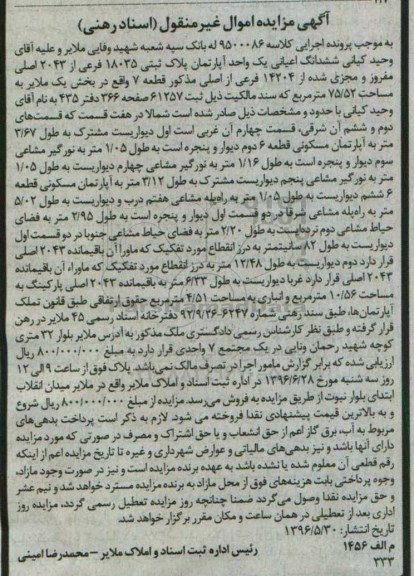 آگهی مزایده اموال غیر منقول (اسناد رهنی)
به موجب پرونده اجرایی کلاسه ۹۵۰۰۰۸۶ له بانک سپه شعبه شهید وفایی ملایر و علیه آقای
وحید کیانی ششدانگ اعیانی یک واحد آپارتمان پلاک ثبتی ۱۸۰۳۵ فرعی از ۲۰۴۳ اصلی
مفروز و مجزی شده از ۱۴۲۰۴ فرعی از اصلی مذکور قطعه ۷ واقع در بخش یک ملایر به
مساحت ۷۵/۵۲ مترمربع که سند مالکیت ذیل ثبت ۶۱۲۵۷ صفحه ۳۶۶ دفتر ۴۳۵ به نام آقای
وحید کیانی با حدود و مشخصات ذیل صادر شده است شمالا در هفت قسمت که قسمت‌های
دوم و ششم آن شرقی، قسمت چهارم آن غربی است اول دیواریست مشترک به طول ۳/۶۷
متر به آپارتمان مسکونی قطعه ۶ دوم دیوار و پنجره است به طول ۱/۰۵ متر به نورگیر مشاعی
سوم دیوار و پنجره است به طول ۱/۱۶ متر به نورگیر مشاعی چهارم دیواریست به طول ۱/۰۵
متر به نورگیر مشاعی پنجم دیواریست مشترک به طول ۳/۱۲ متر به آپارتمان مسکونی قطعه
۶ ششم دیواریست به طول ۱/۰۵ متر به راه‌پله مشاعی هفتم درب و دیواریست به طول ۵/۰۲
متر به راه‌پله مشاعی شرقا در دو قسمت اول دیوار و پنجره است به طول ۲/۹۵ متر به فضای
حیاط مشاعی دوم نرده‌ایست به طول ۲/۲۰ متر به فضای حیاط مشاعی جنوبا در دو قسمت اول
دیواریست به طول ۸۲ سانتیمتر به درز انقطاع مورد تفکیک که ماورا آن باقیمانده ۲۰۴۳ اصلی
قرار دارد دوم دیواریست به طول ۱۲/۴۸ متر به درز انقطاع مورد تفکیک که ماوراء آن باقیمانده
۲۰۴۳ اصلی قرار دارد غربا دیواریست به طول ۶/۳۳ متر به باقیمانده ۲۰۴۳ اصلی پارکینگ به
مساحت ۱۰/۵۶ مترمربع و انباری به مساحت ۴/۵۱ مترمربع حقوق ارتفاقی طبق قانون تملک
آپارتمان‌ها، طبق سند رهنی شماره ۶۲۴۷-۹۲/۹/۲۶ دفترخانه اسناد رسمی ۴۵ ملایر در رهن
قرار گرفته و طبق نظر کارشناس رسمی دادگستری ملک مذکور به آدرس ملایر بلوار ۳۲ متری
کوچه شهید رحمان ونایی در یک مجتمع ۷ واحدی قرار دارد به مبلغ ۸۰۰/۰۰۰/۰۰۰ ریال
ارزیابی شده که برابر گزارش مامور اجرا در تصرف مالک نمی‌باشد. پلاک فوق از ساعت ۹ الی ۱۲
روز سه شنبه مورخ ۱۳۹۶/۶/۲۸ در اداره ثبت اسناد و املاک ملایر واقع در ملایر میدان انقلاب
ابتدای بلوار نبوت از طریق مزایده به فروش می‌رسد. مزایده از مبلغ ۸۰۰/۰۰۰/۰۰۰ ریال شروع
و به بالاترین قیمت پیشنهادی نقدا فروخته می شود. لازم به ذکر است پرداخت بدهی‌های
مربوط به آب، برق گاز اعم از حق انشعاب و یا حق اشتراک و مصرف در صورتی که مورد مزایده
دارای آنها باشد و نیز بدهی‌های مالیاتی و عوارض شهرداری و غیره تا تاریخ مزایده اعم از اینکه
رقم قطعی آن معلوم شده یا نشده باشد به عهده برنده مزایده است و نیز در صورت وجود مازاد،
وجوه پرداختی بابت هزینه‌های فوق از محل مازاد به برنده مزایده مسترد خواهد شد و نیم عشر
و حق مزایده نقدا وصول می‌گردد ضمنا چنانچه روز مزایده تعطیل رسمی گردد، مزایده روز
اداری بعد از تعطیلی در همان ساعت و مکان مقرر برگزار خواهد شد.
تاریخ انتشار: ۱۳۹۶/۵/۳۰
م الف ۱۴۵۶
رئیس اداره ثبت اسناد و املاک ملایر – محمدرضا امینی
۳۳۳